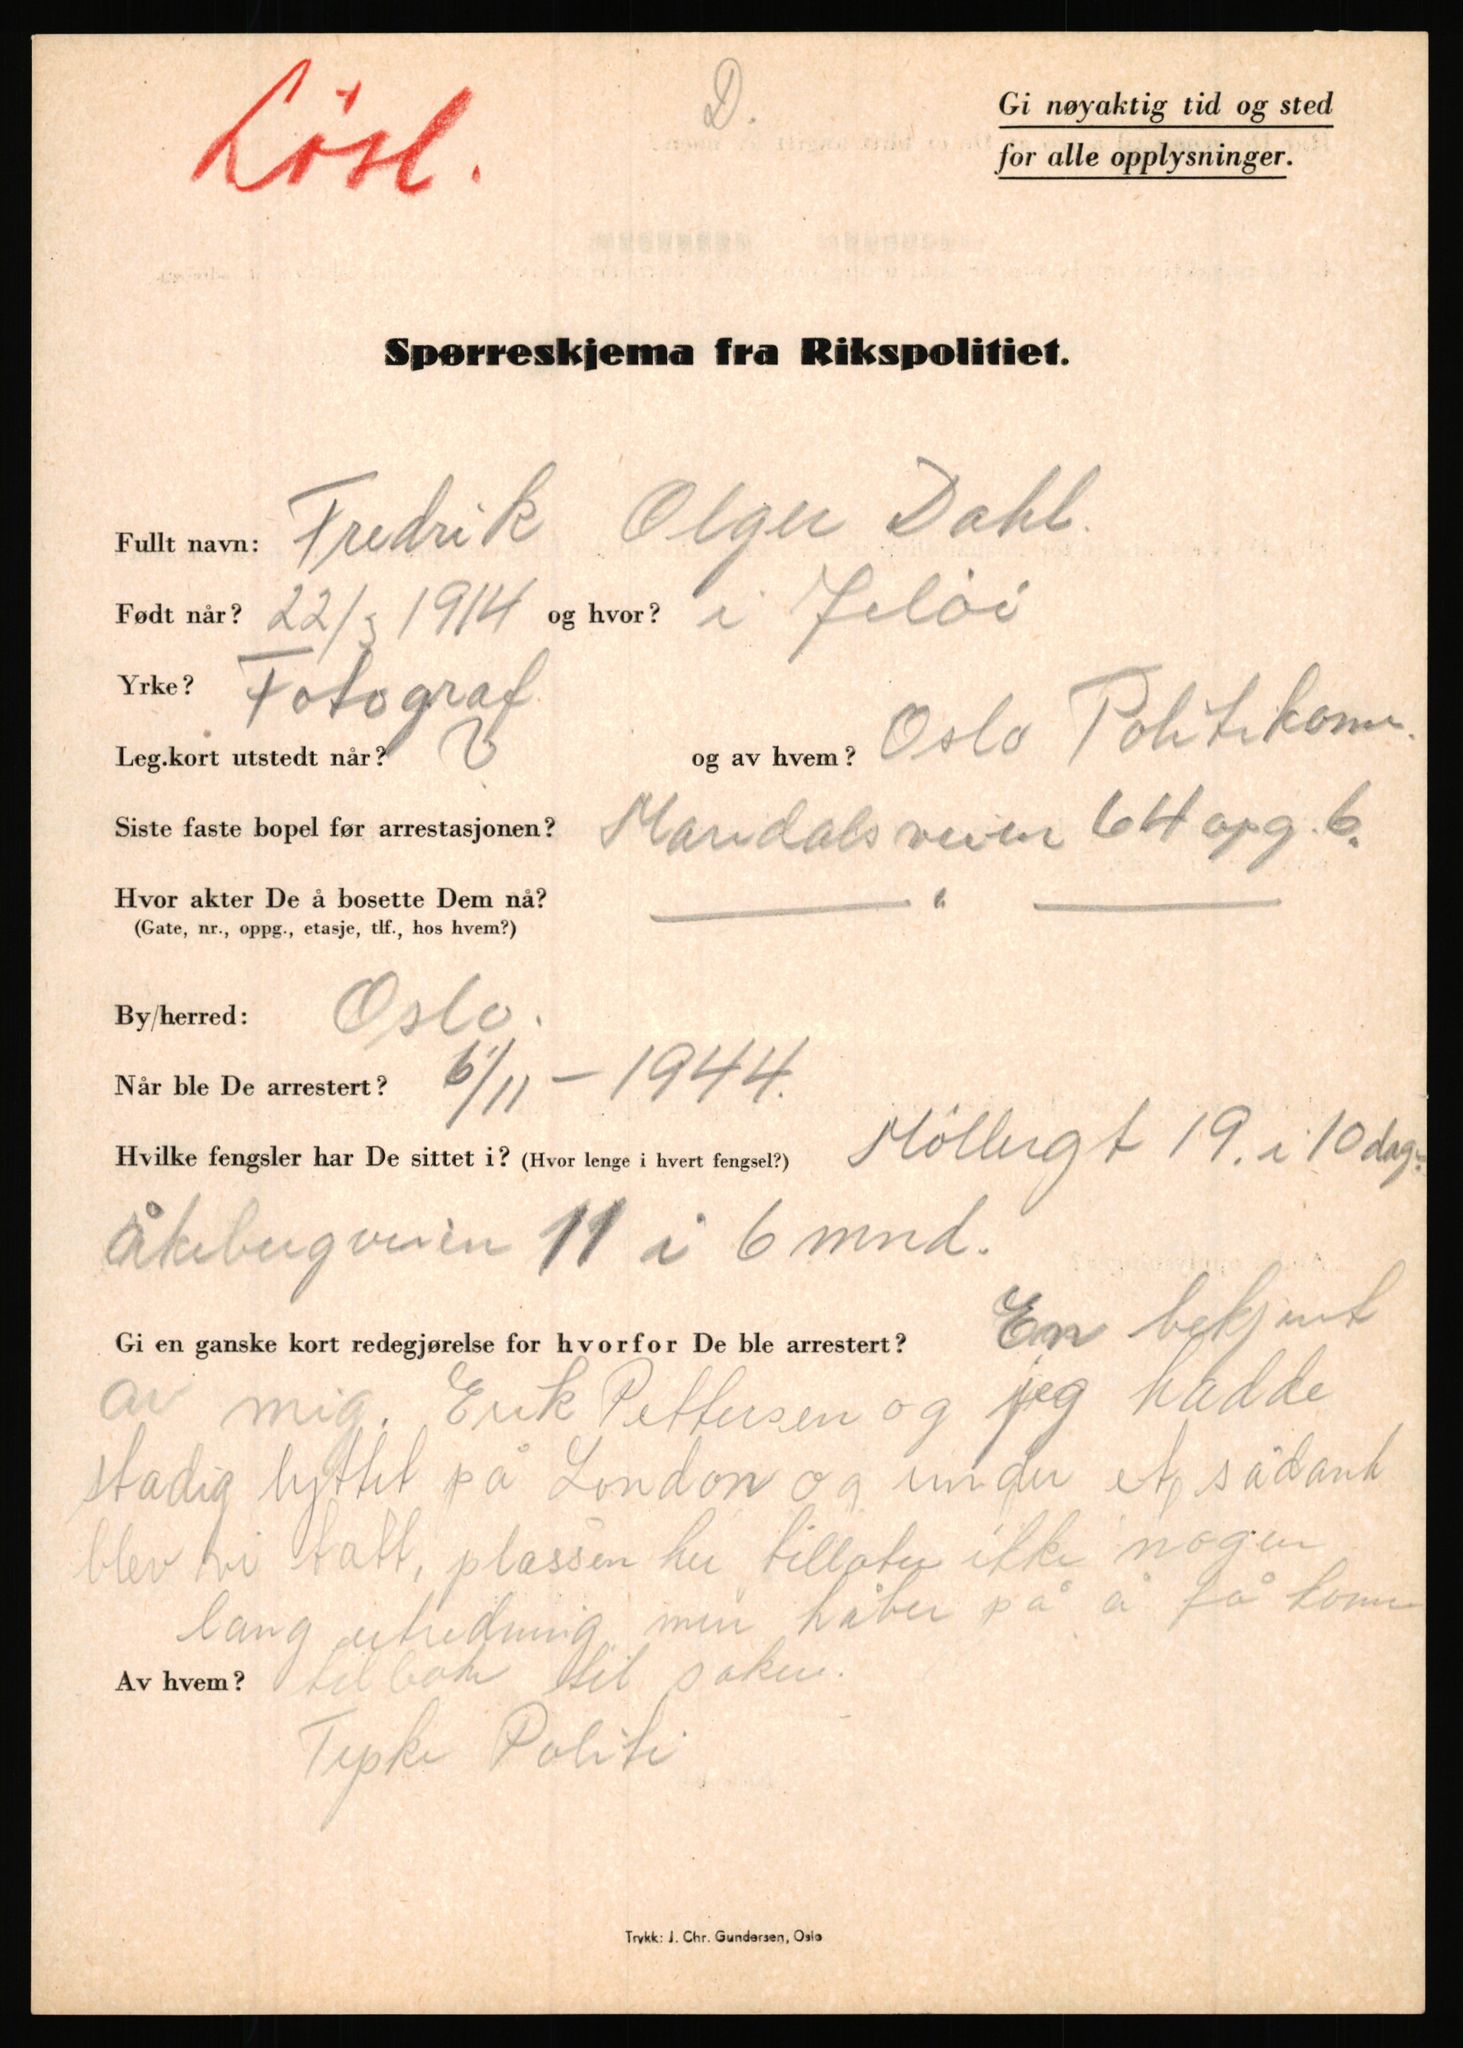 Løsl.
D.
Gi nøyaktig tid og sted
for alle opplysninger.
Spørreskjema fra Rikspolitiet.
Fullt navn: Fredrik Olger Dahl.
Født når? 22/3 1914 og hvor? i Jeløi
Yrke? Fotograf
Leg.kort utstedt når? og av hvem? Oslo Politikam.
Siste faste bopel før arrestasjonen? Maridalsveien 64 opg. 6.
Hvor akter De å bosette Dem nå? — " —
(Gate, nr., oppg., etasje, tlf., hos hvem?)
By/herred: Oslo.
Når ble De arrestert? 6/11 - 1944.
Hvilke fengsler har De sittet i? (Hvor lenge i hvert fengsel?) Møllergt 19. i 10 dag.
Åkebergveien 11 i 6 mnd.
Gi en ganske kort redegjørelse for hvorfor De ble arrestert? En bekjent
av mig. Erik Pettersen og jeg hadde
stadig lyttet på London og under et sådant
blev vi tatt, plassen her tillater ikke nogen
lang utredning men håber på å få komme
Av hvem? tilbake til saken.
Tyske Politi
Trykk: J. Chr. Gundersen, Oslo